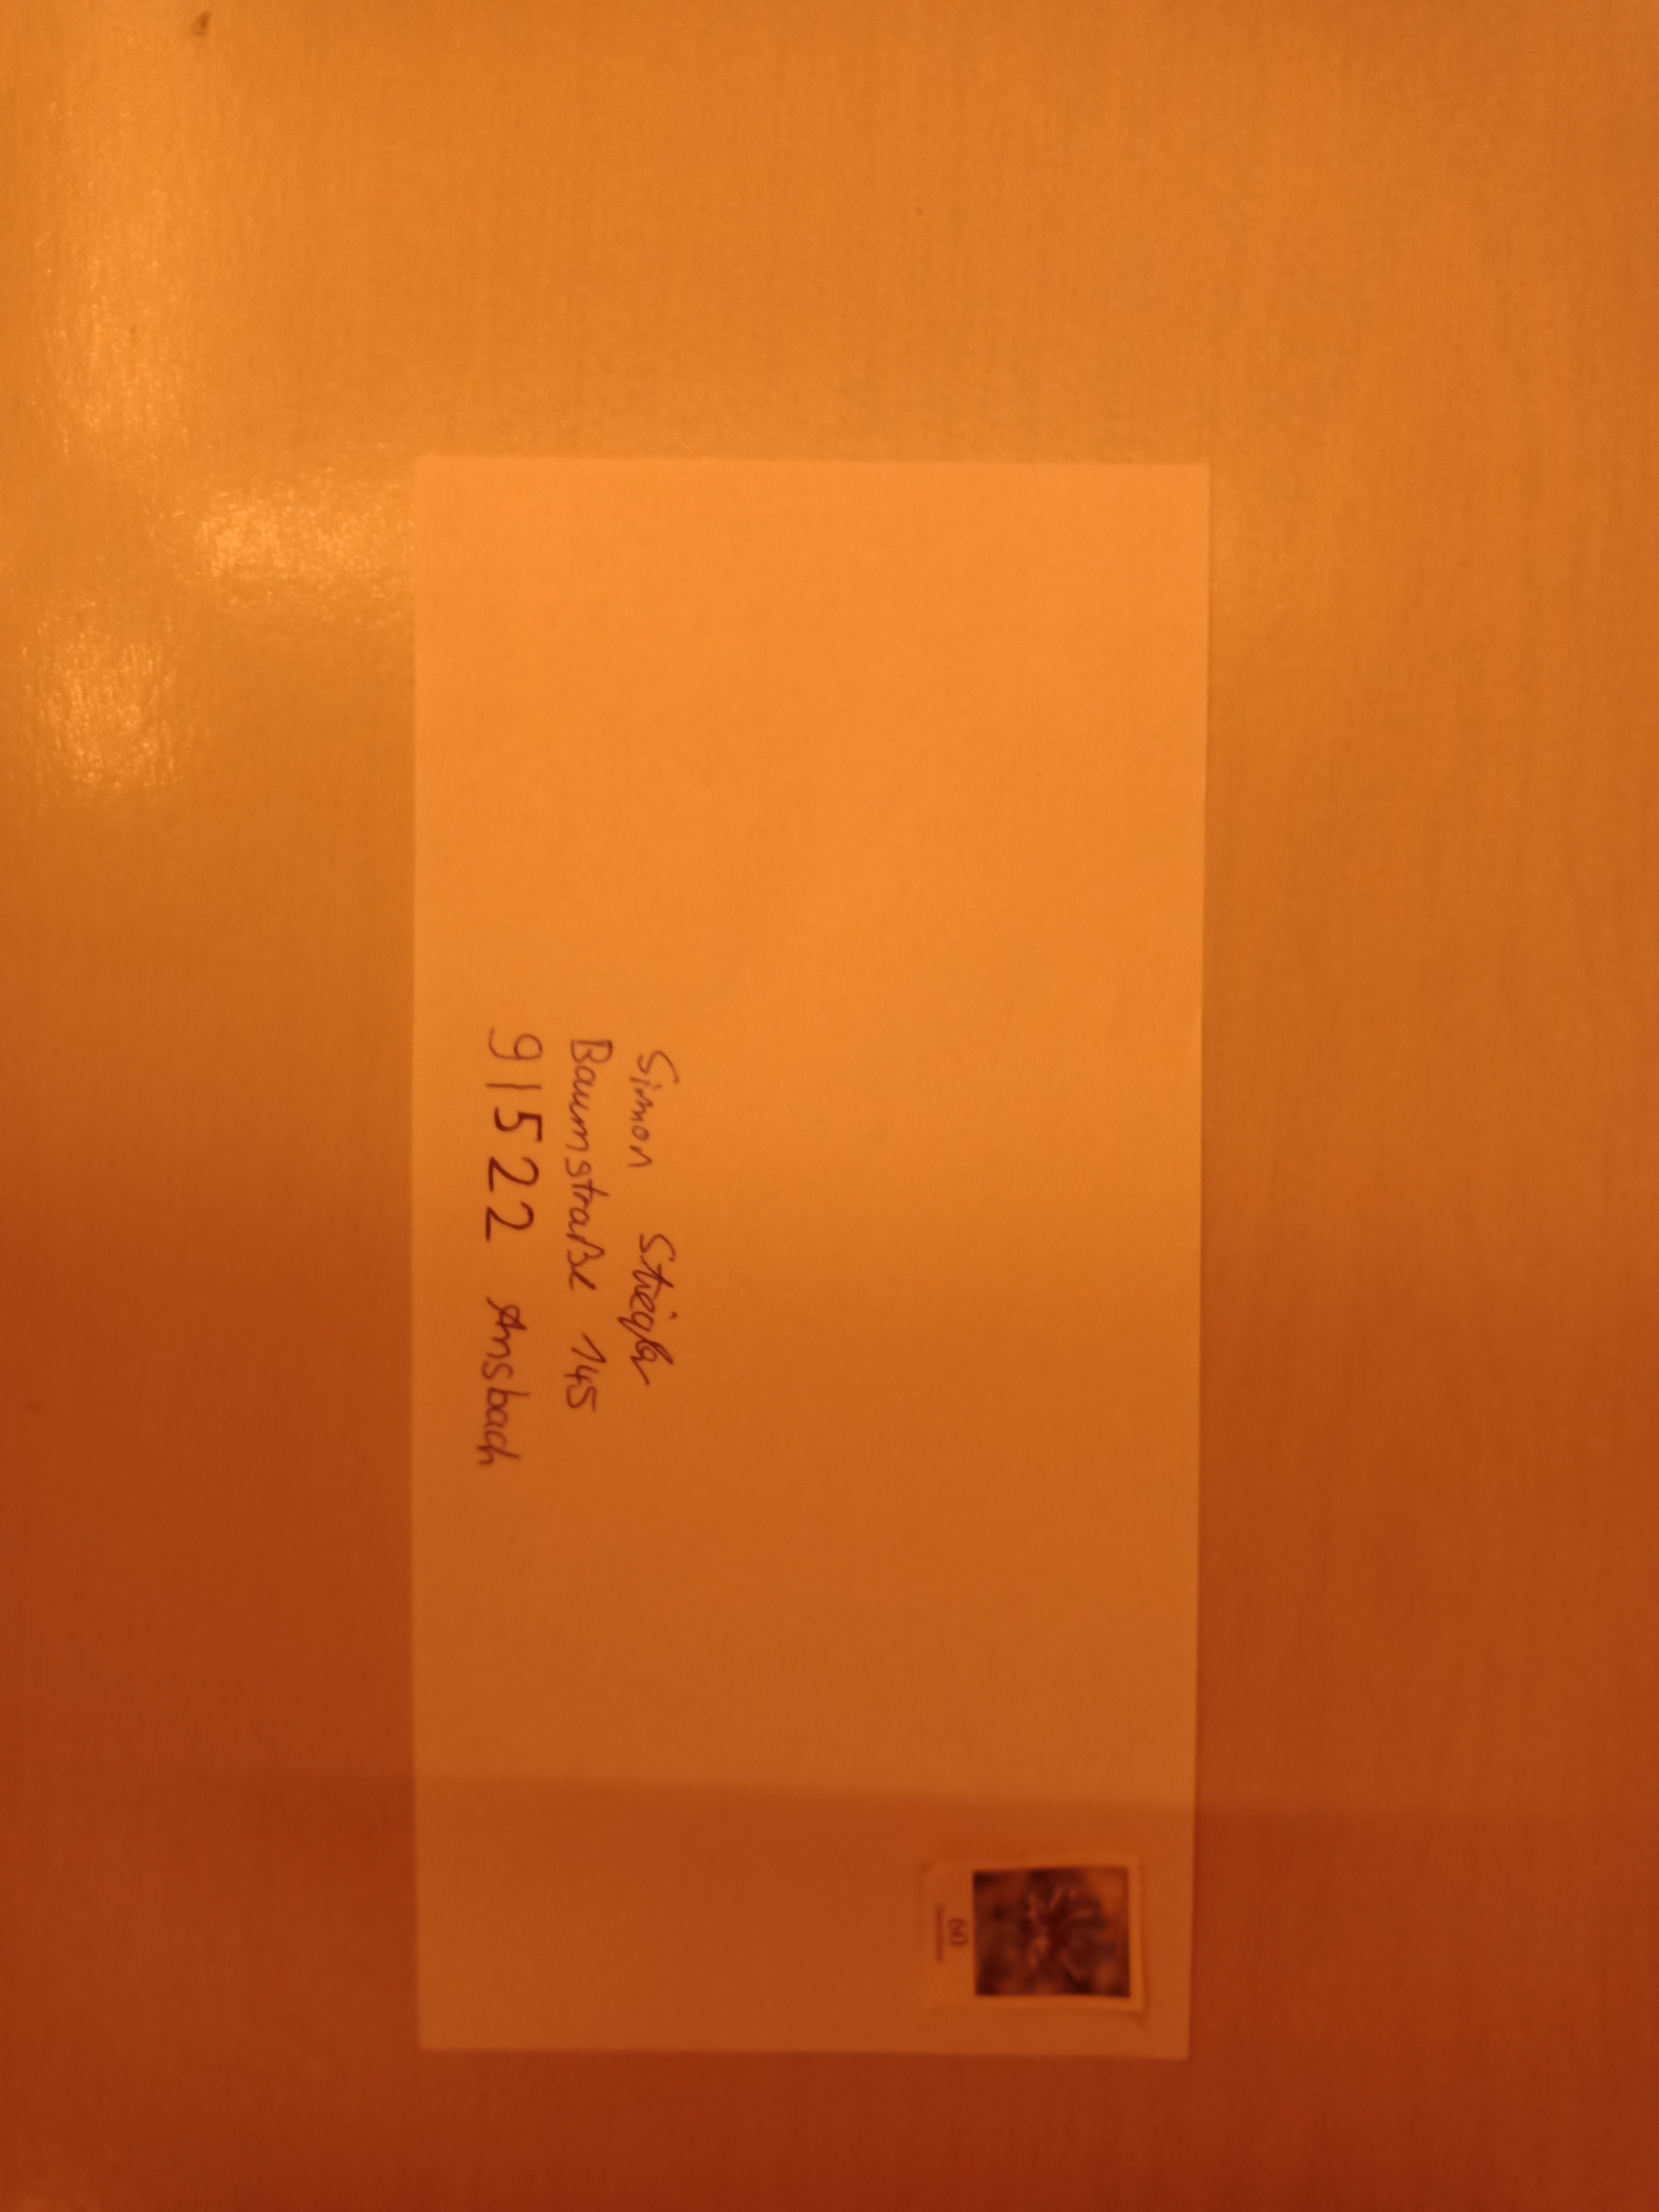 Simon
Baumstraße 145
91522 Ansbach
60